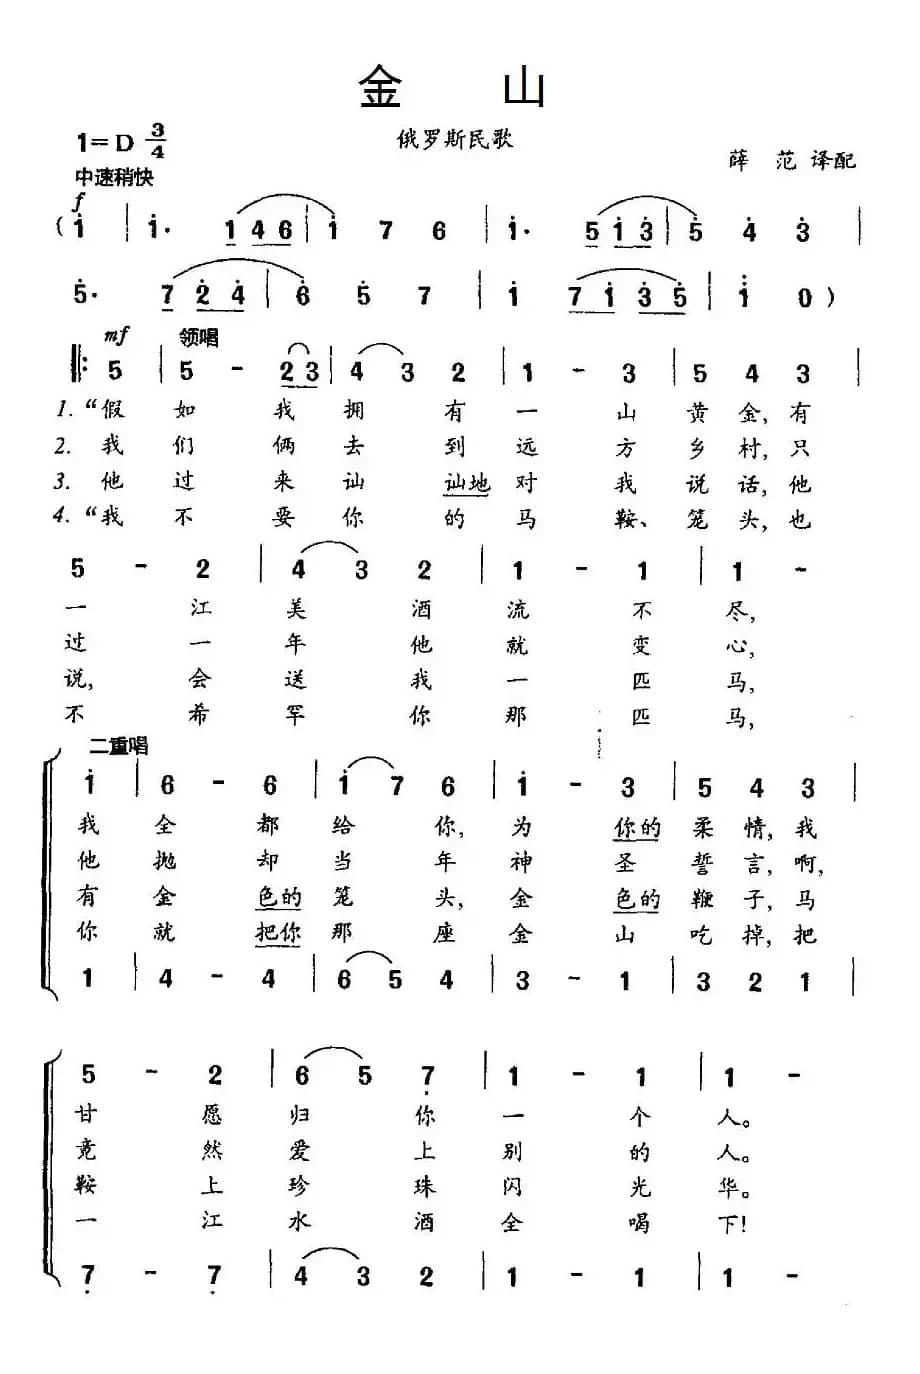 金 山
俄罗斯民歌
1=D 3/4
薛 范 译配
中速稍快
f
( i | i· 1 4 6 | i 7 6 | i· 5 i 3 | 5 4 3 |
5· 7 2 4 | 6 5 7 | i 7 i 3 5 | i 0 )
mf 领唱
5 | 5 - 2 3 | 4 3 2 | 1 - 3 | 5 4 3 |
1. “假 如 我 拥 有 一 山 黄 金, 有
2. 我 们 俩 去 到 远 方 乡 村, 只
3. 他 过 来 讪 讪地 对 我 说 话, 他
4. “我 不 要 你 的 马 鞍、 笼 头, 也
5 - 2 | 4 3 2 | 1 - 1 | 1 -
一 江 美 酒 流 不 尽,
过 一 年 他 就 变 心,
说, 会 送 我 一 匹 马,
不 希 罕 你 那 匹 马,
二重唱
i | 6 - 6 | i 7 6 | i - 3 | 5 4 3 |
我 全 都 给 你, 为 你的 柔 情, 我
他 抛 却 当 年 神 圣 誓 言, 啊,
有 金 色的 笼 头, 金 色的 鞭 子, 马
你 就 把你 那 座 金 山 吃 掉, 把
1 | 4 - 4 | 6 5 4 | 3 - 1 | 3 2 1 |
5 - 2 | 6 5 7 | 1 - 1 | 1 -
甘 愿 归 你 一 个 人。
竟 然 爱 上 别 的 人。
鞍 上 珍 珠 闪 光 华。
一 江 水 酒 全 喝 下!
7 - 7 | 4 3 2 | 1 - 1 | 1 -